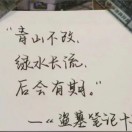 "青山不改,
绿水长流,
后会有期。"
——《盗墓笔记十